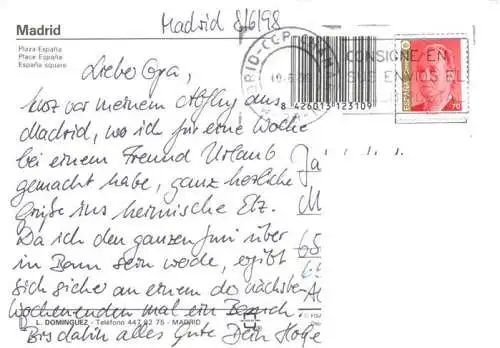 Madrid 8/6/98
Madrid
Plaza España
Place España
España square
Lieber Opa,
kurz vor meinem Abflug aus
Madrid, wo ich für eine Woche
bei einem Freund Urlaub
gemacht habe, ganz herzliche
Grüße ins heimische Etz.
Da ich den ganzen Juni über
in Bonn sein werde, ergibt
sich sicher an einem de nächsten
Wochenenden mal ein Besuch.
Bis dahin alles Gute Dein Holge
L. DOMINGUEZ - Teléfono 447 92 75 - MADRID
8 426013 123109
CONSIGNE EN
SUS ENVIOS EL
ESPAÑA
70